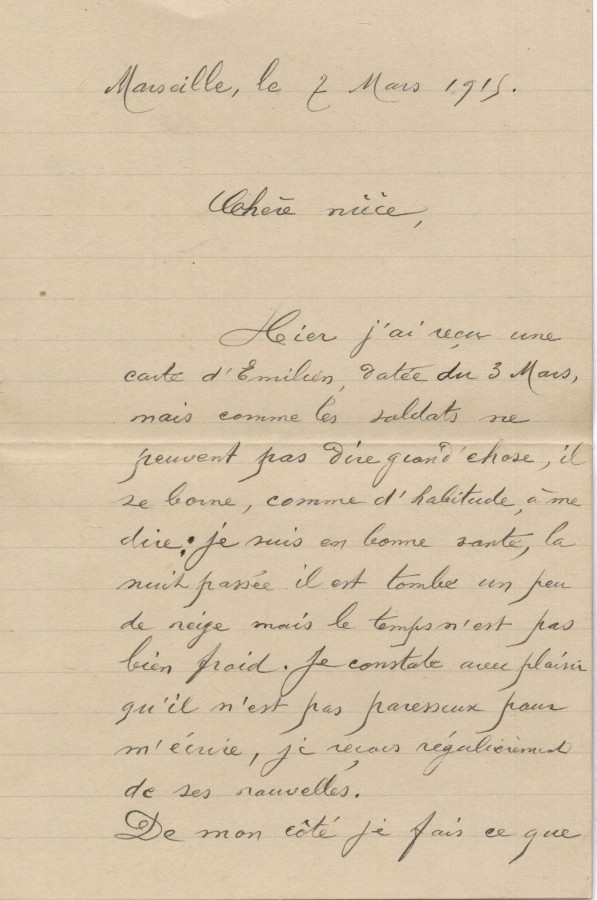 Marseille, le 7 Mars 1915.
Chère nièce,
Hier j'ai reçu une
carte d'Emilien, datée du 3 Mars,
mais comme les soldats ne
peuvent pas dire grand'chose, il
se borne, comme d'habitude, à me
dire: je suis en bonne santé, la
nuit passée il est tombé un peu
de neige mais le temps n'est pas
bien froid. Je constate avec plaisir
qu'il n'est pas paresseux pour
m'écrire, je reçois régulièrement
de ses nouvelles.
De mon côté je fais ce que